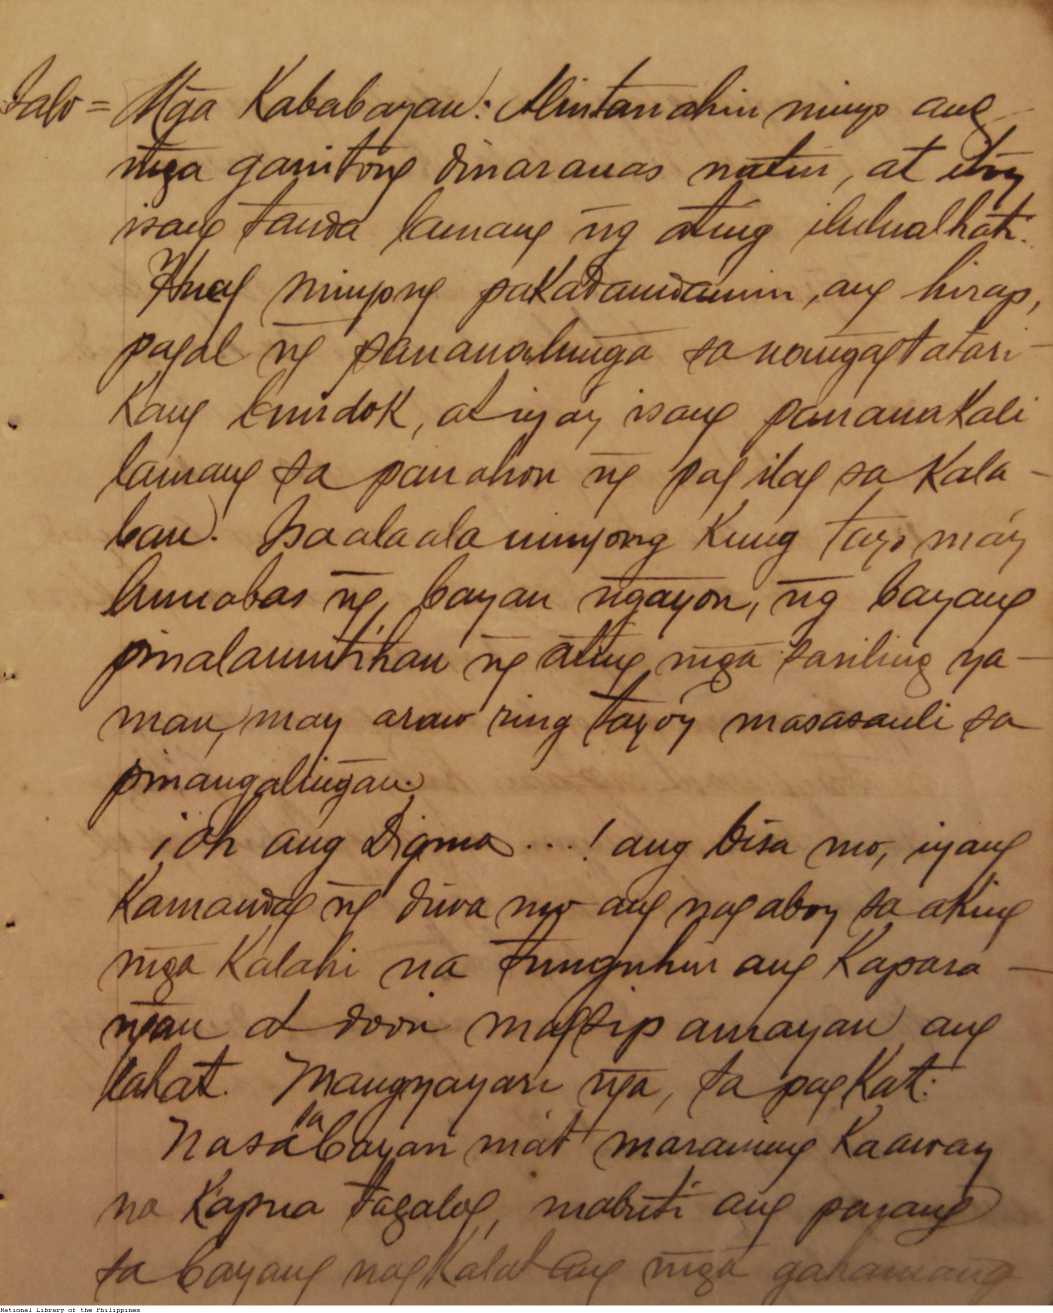 Salv = Mga Kababayan: Alintanahin ninyo ang
mḡa ganitong dinaranas natin, at ito'y
isang tanda lamang n̄g ating ilulualhati.
Huag ninyong pakadamdamin, ang hirap,
pagal n̄g pananahunḡa sa nanḡagtatari-
kang bundok, at iya'y isang pananakali
lamang sa panahon n̄g pag ilag sa kala-
ban. Isaalaala ninyong kung tayo, may
lumabas n̄g, bayan n̄gayon, n̄g bayang
pinalamutihan n̄g ating mḡa sariling ya-
man, may araw ring tayo'y masasauli sa
pinangalinḡan.
¡Oh ang Digma...! ang bisa mo, iyang
Kamandag n̄g diwa mo ang nagaboy sa aking
mḡa Kalahi na tunguhin ang Kapara-
n̄gan at doon magsipamayan ang
lahat. Mangyayari n̄ga, sa pagkat:
Nasa sa bayan ma't maraming Kaaway
na Kapua tagalog, mabuti ang parang
sa bayang nagkalat ang mḡa gahamang
National Library of the Philippines